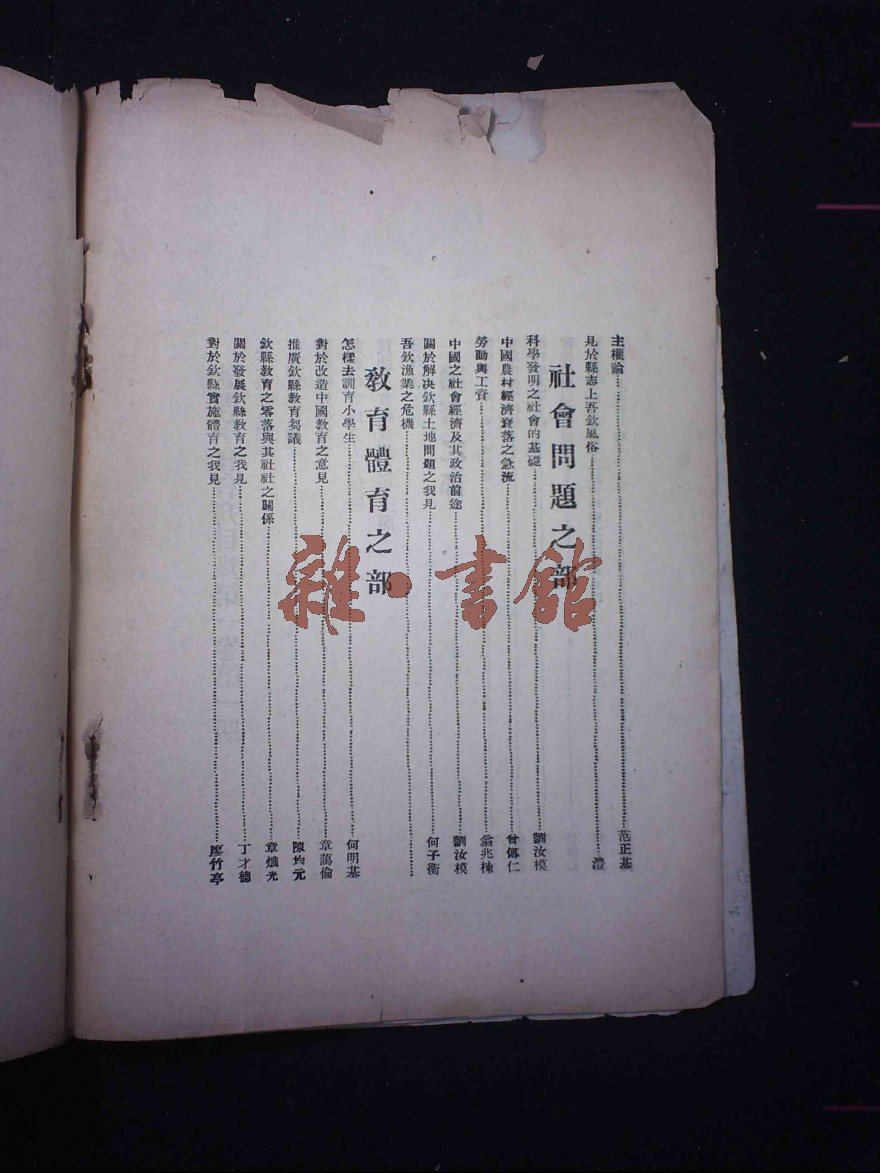 主權論……范正基
見於縣志上吾欽風俗……澧
社會問題之部
科學發明之社會的基礎……劉汝模
中國農村經濟衰落之急流……曾傳仁
勞動與工資……翁兆棟
中國之社會經濟及其政治前途……劉汝模
關於解决欽縣土地問題之我見……何子衡
吾欽漁業之危機……
教育體育之部
怎樣去訓育小學生……何明基
對於改造中國教育之意見……章藹倫
推廣欽縣教育芻議……陳均元
欽縣教育之零落與其社社之關係……章熾光
關於發展欽縣教育之我見……丁才德
對於欽縣實施體育之我見……廖竹亭
雜·書館